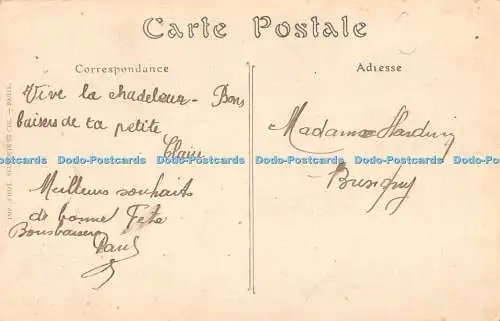 Carte Postale
Correspondance
Adresse
Vive la chadeleur - Bons
baisers de ta petite
Clair
Meilleurs souhaits
de bonne Fête
Bonsbaisers
Paul
Madame Harduin
Busigny
Dodo-Postcards Dodo-Postcards Dodo-Postcards Dodo-Postcards Dodo-Postcards